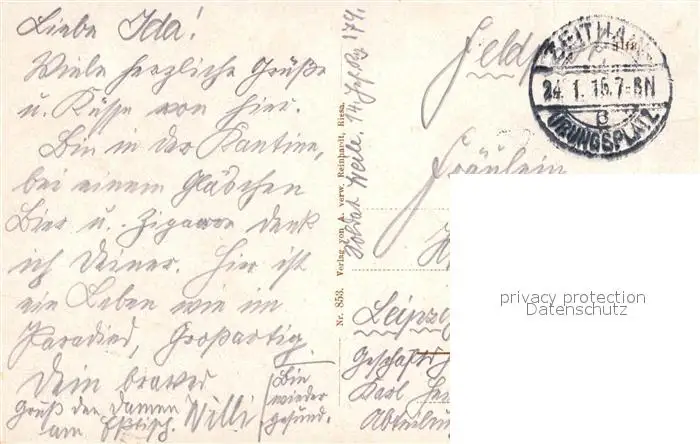 Liebe Ida!
Viele herzliche Grüße
u. Küsse von hier.
Bin in der Kantine,
bei einem Gläschen
Bier u. Zigarre denk
ich Deiner. Hier ist
ein Leben wie im
Paradies, Großartig.
Dein braver
Willi
Gruß den Damen
am
Bin
wieder
gesund.
Nr. 853. Verlag von A. verw. Reinhardt, Riesa.
Soldat 14. 179.
Feldp
ZEITHAIN
24.1.15.7-8N
B
ÜBUNGSPLATZ
Fräulein
Leipzig
Geschäfts
Karl
Abteilun
privacy protection
Datenschutz